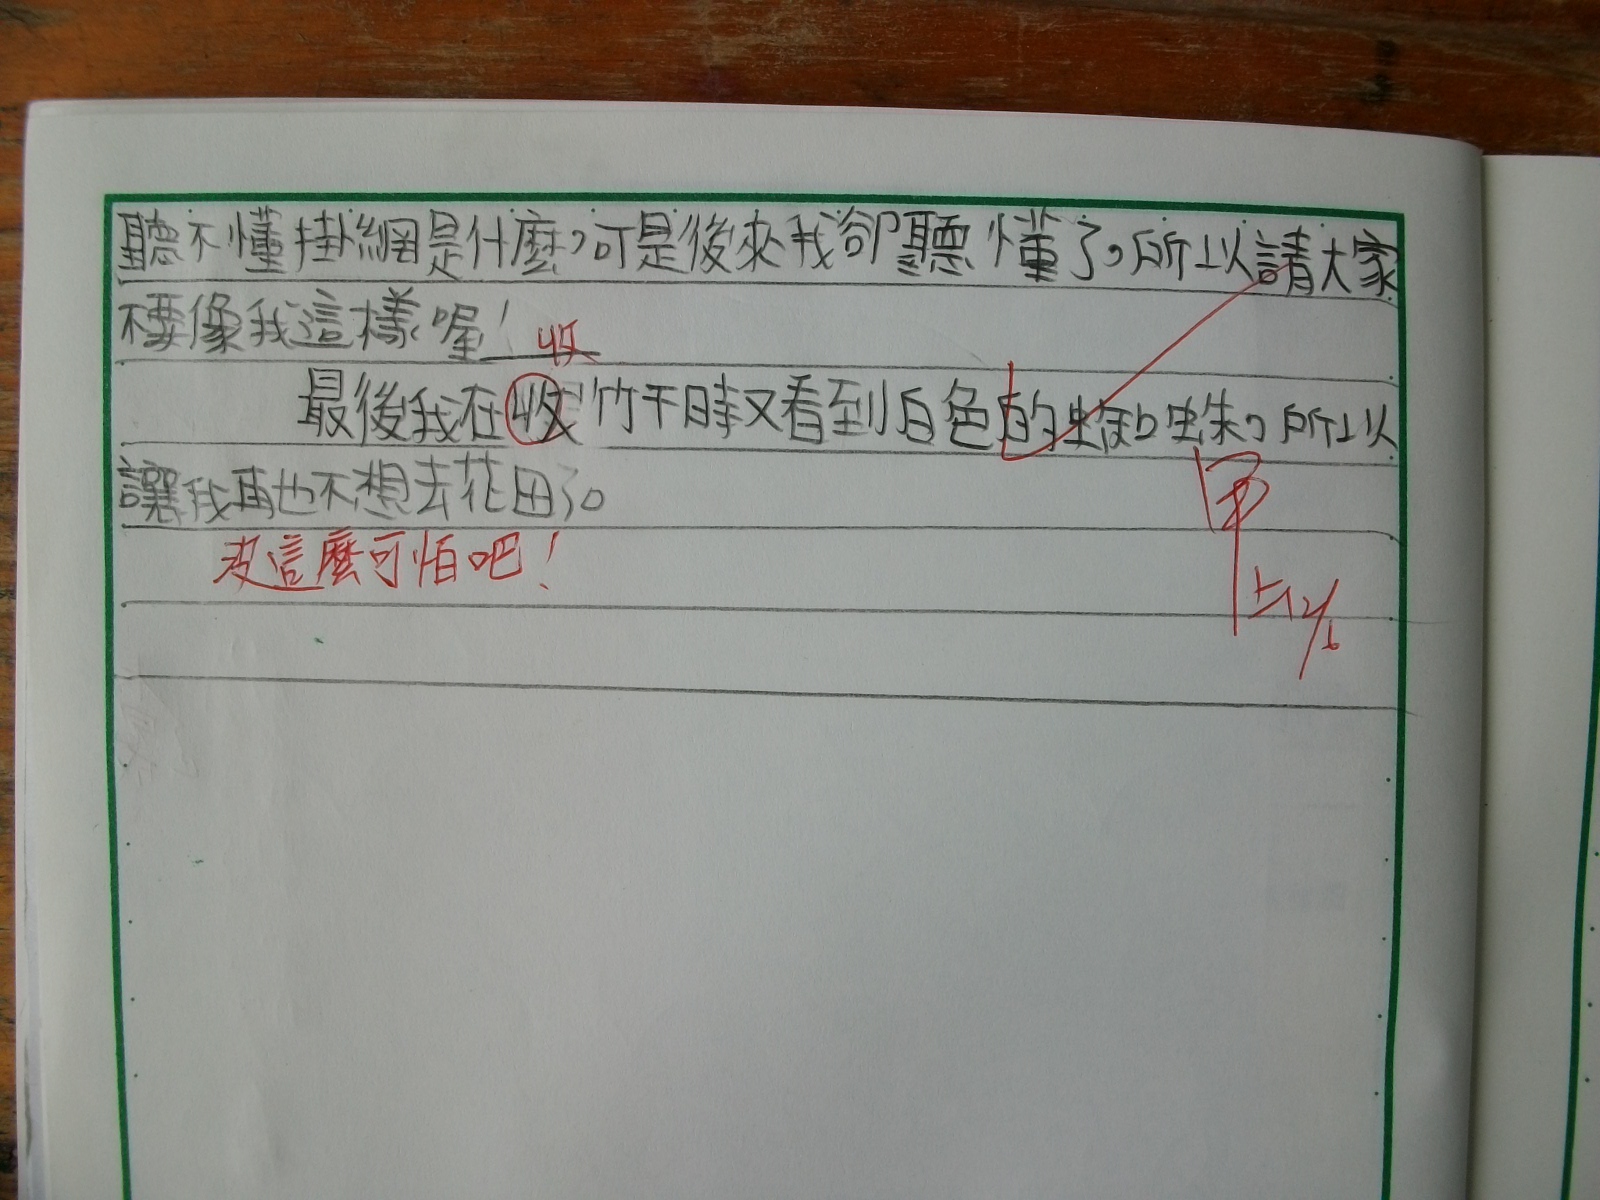 聽不懂掛網是什麼，可是後來我卻聽懂了。所以請大家
不要像我這樣喔！
收
最後我在收竹干時又看到白色的蜘蛛，所以
讓我再也不想去花田了。
甲
沒這麼可怕吧！
上12/6